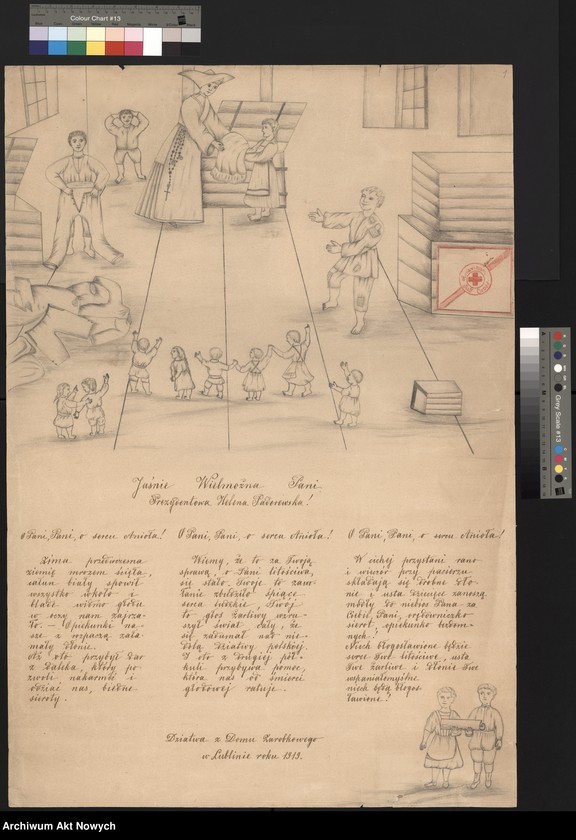 Colour Chart #13
Jaśnie Wielmożna Pani
Prezydentowa Helena Paderewska!
O Pani, Pani, o sercu Anioła!
Zima przedwczesna
ziemię mrozem ścięła,
całun biały spowił
wszystko wkoło i
blade widmo głodu
w oczy nam zajrza-
ło. Opiekunki na-
sze z rozpaczą zała-
mały dłonie.
Aż oto przybył dar
z daleka, który po-
zwoli nakarmić i
odziać nas, biedne
sieroty.
O Pani, Pani, o sercu Anioła!
Wiemy, że to za Twoją
sprawą, o Pani litościwa,
się stało. Twoje to zawo-
łanie zbudziło śpiące
serca ludzkie, Twój
to głos żarliwy wzru-
szył świat cały, że
się zadumał nad nie-
dolą dziatwy polskiej.
I oto z drugiej pół-
kuli przybywa pomoc,
która nas od śmierci
głodowej ratuje.
O Pani, Pani, o sercu Anioła!
W cichej przystani rano
i wieczór przy pacierzu
składają się drobne dło-
nie i usta dziecięce zanoszą
modły do niebios Pana za
Ciebie, Pani, orędowniczko
sierot, opiekunko bezdom-
nych!
Niech błogosławione będzie
serce Twe litościwe, usta
Twe żarliwe i dłonie Twe
wspaniałomyślne
niech będą błogos-
ławione!
Dziatwa z Domu Zarobkowego
w Lublinie roku 1919.
Grey Scale #13
Archiwum Akt Nowych